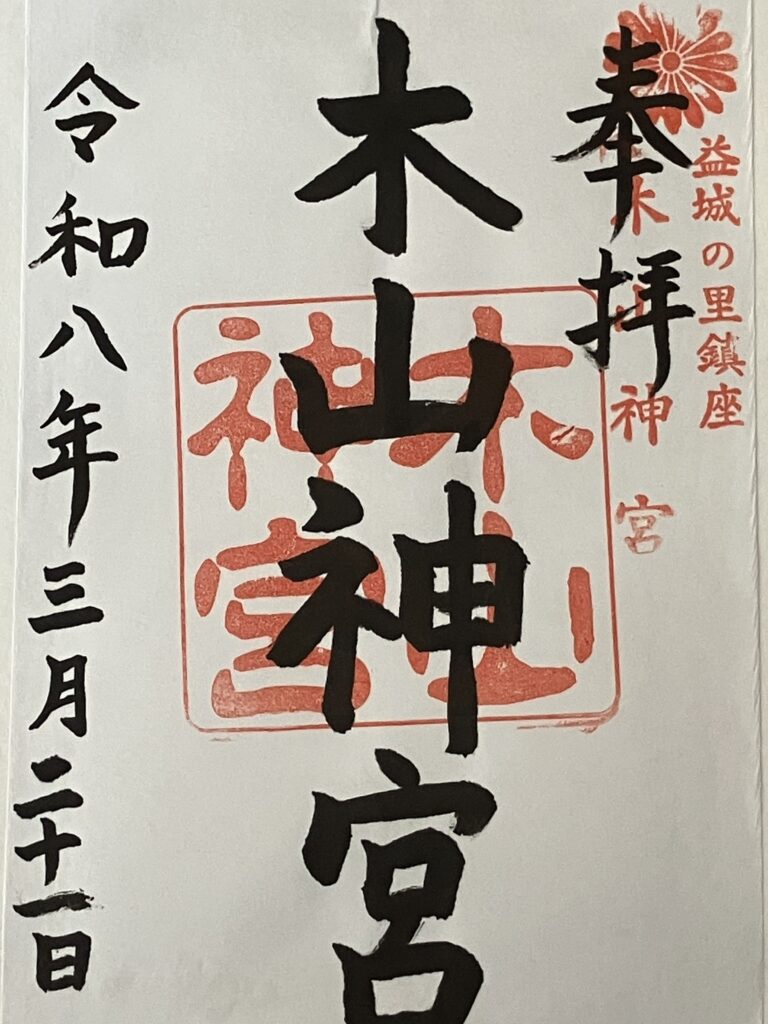 益城の里鎮座
木山神宮
奉拝
木山神宮
木山神宮
令和八年三月二十一日